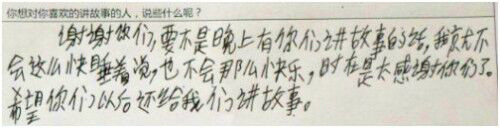 你想对你喜欢的讲故事的人，说些什么呢？
谢谢你们，要不是晚上有你们讲故事的话，我竟不
会这么快睡着说，也不会那么快乐，时在是太感谢你们了。
希望你们以后还给我们讲故事。